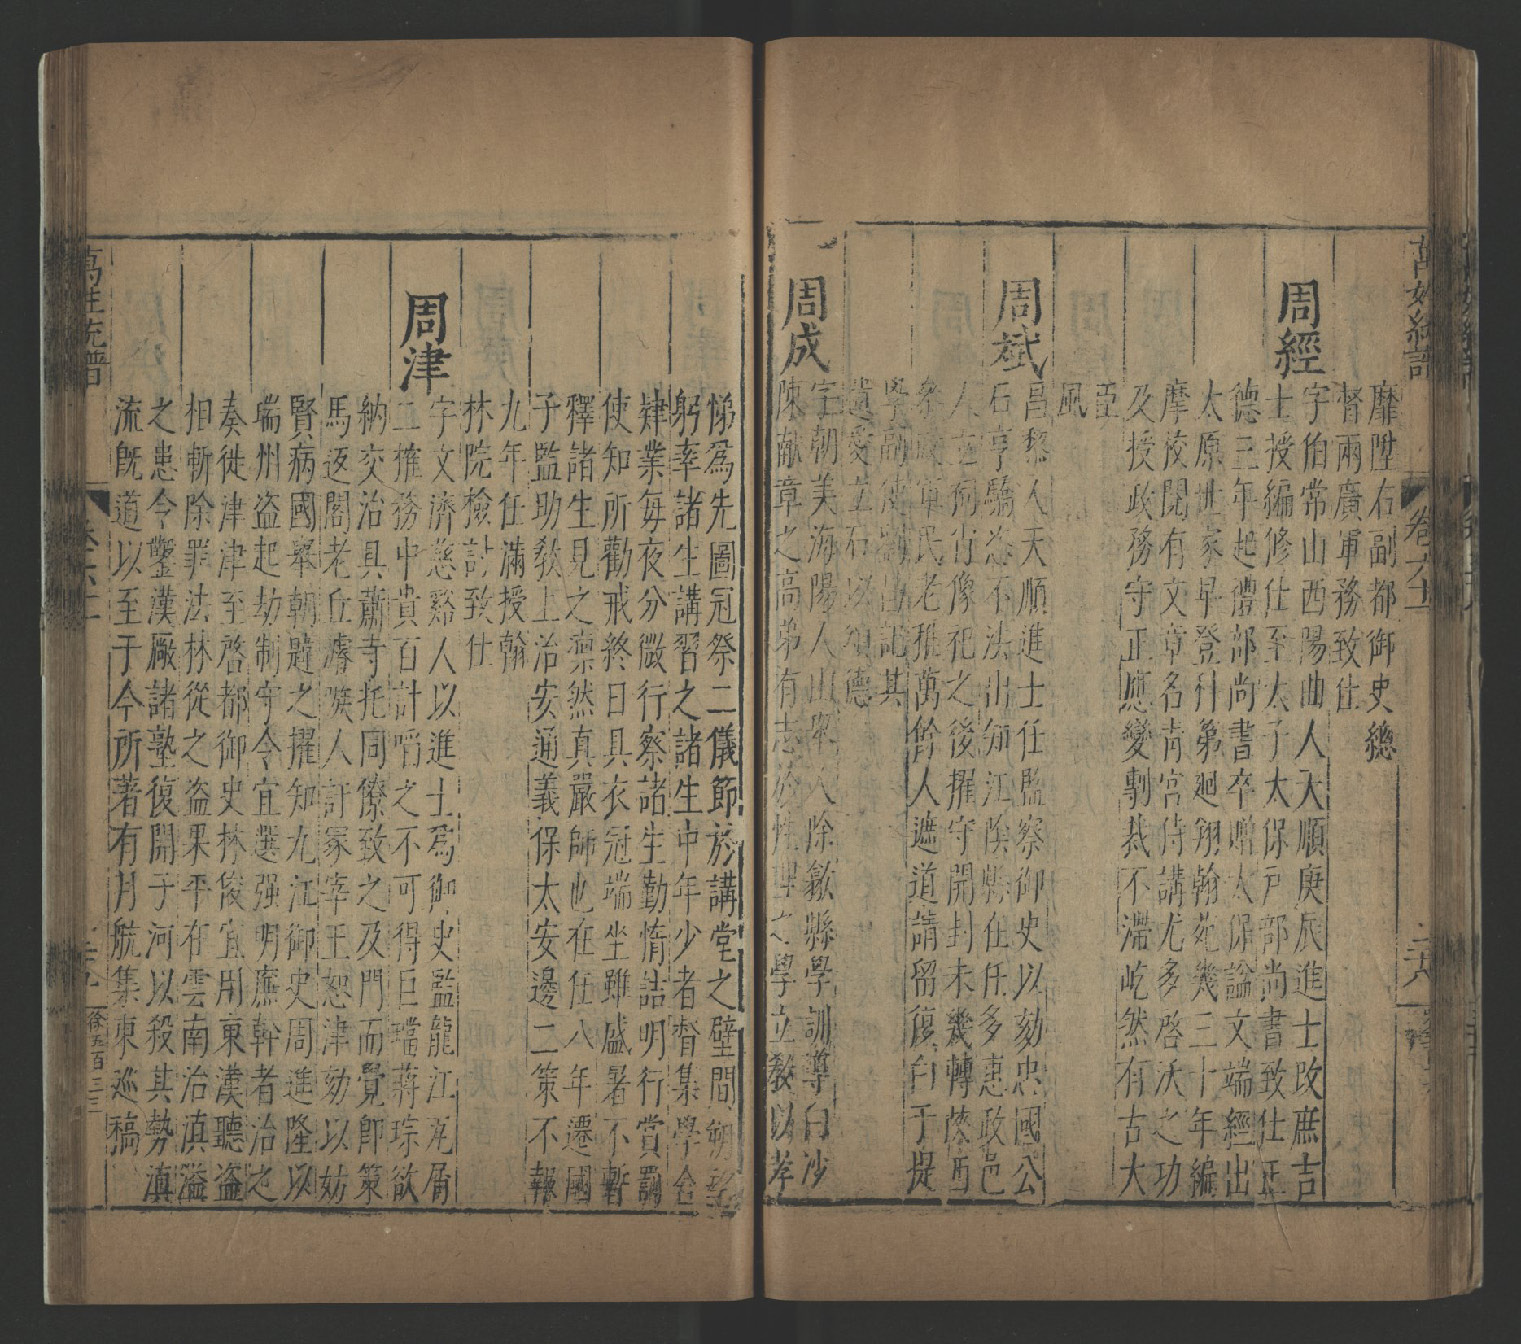 萬姓統譜
卷六十一
靡陞右副都御史總
督兩廣軍務致仕
周經
字伯常山西陽曲人天順庚辰進士改庶吉
士授編修仕至太子太保戶部尚書致仕正
德三年起禮部尚書卒贈太保諡文端經出
太原世家早登科第廻翔翰苑幾三十年編
摩校閱有文章名青宮侍講尤多啓沃之功
及授政務守正應變剸裁不濡屹然有古大
臣
風
周斌
昌黎人天順進士任監察御史以劾忠國公
石亨驕恣不法出知江陰縣在任多惠政邑
人立祠肖像祀之後擢守開封未幾轉陝西
參政軍民老稚萬餘人遮道請留復白于提
學副使劉昌記其
遺愛立石以頌德
周成
字朝美海陽人由舉人除歙縣學訓導白沙
陳獻章之高弟有志於性理之學立教以孝
悌爲先圖冠祭二儀節於講堂之壁間朔望
躬率諸生講習之諸生中年少者督集學舍
肄業每夜分微行察諸生勤惰詰明行賞罰
使知所勸戒終日具衣冠端坐雖盛暑不暫
釋諸生見之凛然真嚴師也在任八年遷國
子監助教上治安通義保太安邊二策不報
九年任滿授翰
林院檢討致仕
周津
字文濟慈谿人以進士爲御史監龍江瓦屑
二榷務中貴百計啗之不可得巨璫蔣琮欲
納交治具蕭寺托同僚致之及門而覺即策
馬返閣老丘濬嗾人訐冢宰王恕津劾以妨
賢病國舉朝韙之擢知九江御史周進隆以
瑞州盗起劫制守令宜選强明廉幹者治之
奏徙津津至啓都御史林俊宜用東漢聽盗
相斬除罪法林從之盗果平布雲南治滇溢
之患今鑿漢厰諸塾復開子河以殺其勢滇
流既道以至于今所著有月航集東巡稿
萬姓統譜
卷六十一
卷五百三三